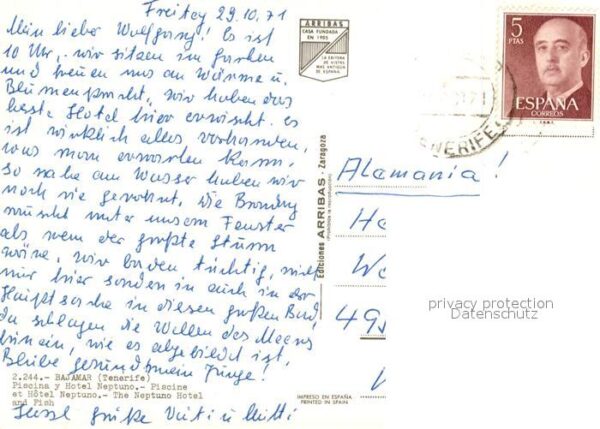 Freitag 29.10.71
Mein lieber Wolfgang! Es ist
10 Uhr, wir sitzen im Garten
und freuen uns an Wärme u.
Blumenpracht, wir haben das
beste Hotel hier erwischt. es
ist wirklich alles vorhanden,
was man erwarten kann,
so nahe am Wasser haben wir
noch nie gewohnt. Die Brandung
rauscht unter unsem Fenster
als wenn der größte Sturm
wäre, wir baden tüchtig, nicht
nur hier sondern auch in der
Hauptsache in diesem großen Bad,
da schlagen die Wellen des Meeres
hinein, wie es abgebildet ist,
Bleibe gesund mein Junge!
2.244.- BAJAMAR (Tenerife)
Piscina y Hotel Neptuno.- Piscine
et Hôtel Neptuno.- The Neptuno Hotel
and Fish
Grüße Vati u Mutti
ARRIBAS
CASA FUNDADA
EN 1905
LA EDITORA
DE VISTAS
MAS ANTIGUA
DE ESPAÑA
Ediciones ARRIBAS - Zaragoza
(prohibida la reproducción)
IMPRESO EN ESPAÑA
PRINTED IN SPAIN
5
PTAS
ESPAÑA
CORREOS
TENERIFE
Alemania!
He
We
495
privacy protection
Datenschutz